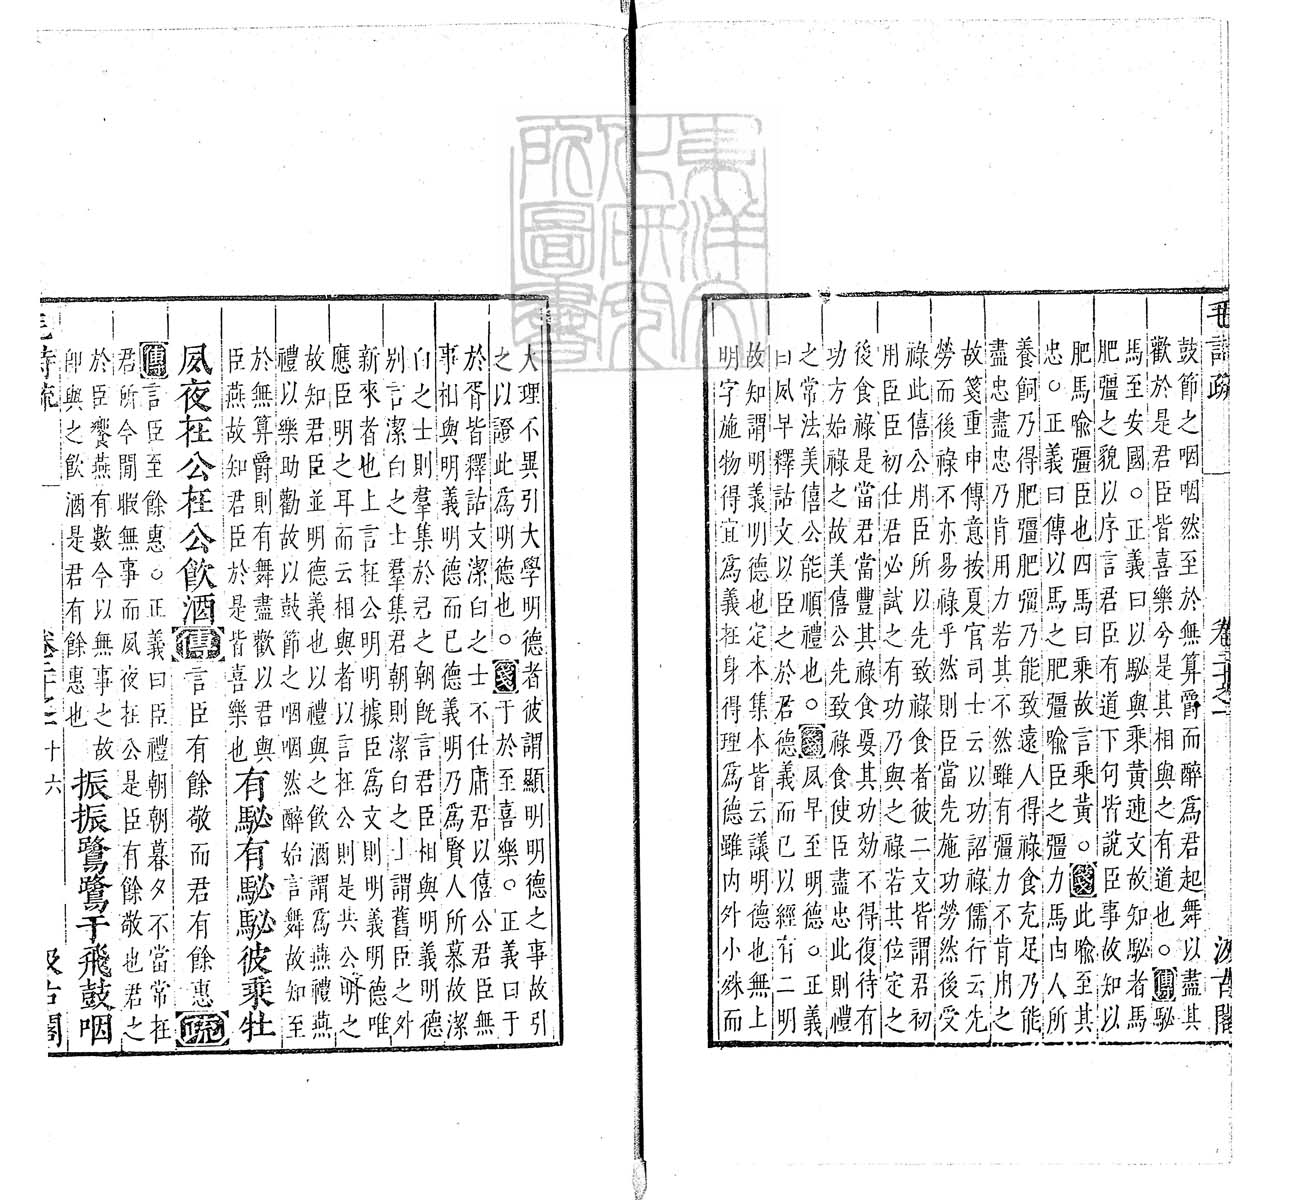 毛詩疏 卷二十之一 汲古閣
鼓節之咽咽然至於無算爵而醉爲君起舞以盡其
歡於是君臣皆喜樂兮是其相與之有道也○傳駜
馬至安國○正義曰以駜與乘黃連文故知駜者馬
肥彊之貌以序言君臣有道下何皆說臣事故知以
肥馬喻彊臣也四馬曰乘故言乘黃○箋此喻至其
忠○正義曰傳以馬之肥彊喻臣之彊力馬由人所
養飼乃得肥彊肥彊乃能致遠人得祿食充足乃能
盡忠盡忠乃肯用力若其不然雖有彊力不肯用之
故箋重申傳意按夏官司士云以功詔祿儒行云先
勞而後祿不亦易祿乎然則臣當先施功勞然後受
祿此僖公用臣所以先致祿食者彼二文皆謂君初
用臣臣初仕君必試之有功乃與之祿若其位定之
後食祿是當君當豐其祿食要其功効不得復待有
功方始祿之故美僖公先致祿食使臣盡忠此則禮
之常法美僖公能順禮也○箋夙早至明德○正義
曰夙早釋詁文以臣之於君德義而已以經有二明
故知謂明義明德也定本集本皆云議明德也無上
明字施物得宜爲義在身得理爲德雖內外小殊而
大理不異引大學明德者彼謂顯明明德之事故引
之以證此爲明德也○箋于於至喜樂○正義曰于
於胥皆釋詁文潔白之士不仕庸君以僖公君臣無
事相與明義明德而已德義明乃爲賢人所慕故潔
白之士則羣集於君之朝旣言君臣相與明義明德
別言潔白之士羣集君朝則潔白之士謂舊臣之外
新來者也上言在公明明據臣爲文則明義明德唯
應臣明之耳而云相與者以言在公則是共公明之
故知君臣並明德義也以禮與之飲酒謂爲燕禮燕
禮以樂助勸故以鼓節之咽咽然醉始言舞故知至
於無算爵則有舞盡歡以君與
臣燕故知君臣於是皆喜樂也
有駜有駜駜彼乘牡
夙夜在公在公飲酒傳言臣有餘敬而君有餘惠疏
傳言臣至餘惠○正義曰臣禮朝朝暮夕不當常在
君所今閒暇無事而夙夜在公是臣有餘敬也君之
於臣饗燕有數今以無事之故
即與之飲酒是君有餘惠也
振振鷺鷺于飛鼓咽
毛詩疏 卷二十之一 十六 汲古閣
東洋文化研究所圖書